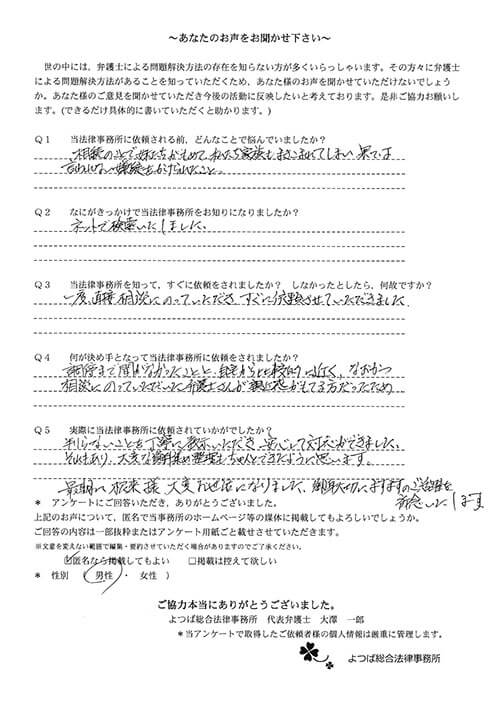 ～あなたのお声をお聞かせ下さい～
世の中には、弁護士による問題解決方法の存在を知らない方が多くいらっしゃいます。その方々に弁護士
による問題解決方法があることを知っていただくため、あなた様のお声を聞かせていただけないでしょう
か。あなた様のご意見を聞かせていただき今後の活動に反映したいと考えております。是非ご協力お願いし
ます。(できるだけ具体的に書いていただくと助かります。)
Q1 当法律事務所に依頼される前、どんなことで悩んでいましたか？
相続のことで姉たちがもめて、私たち家族もまきこまれてしまい
Q2 なにがきっかけで当法律事務所をお知りになりましたか？
ネットで検索いたしました。
Q3 当法律事務所を知って，すぐに依頼をされましたか？ しなかったとしたら、何故ですか？
一度、直接相談にのっていただき、すぐに依頼させていただきました
Q4 何が決め手となって当法律事務所に依頼をされましたか？
自宅から比較的近く、なおかつ
相談にのっていただいた弁護士さんが 方だったため
Q5 実際に当法律事務所に依頼されていかがでしたか？
知らないことを丁寧に教示いただき、安心して対応ができました。
それもあり、大変な 整理もちゃんとできたように思います。
大変お世話になりました。 ますますのご活躍を
祈念いたします
* アンケートにご回答いただき、ありがとうございました。
上記のお声について、匿名で当事務所のホームページ等の媒体に掲載してもよろしいでしょうか。
ご回答の内容は一部抜粋またはアンケート用紙ごと載せさせていただきます。
※文意を変えない範囲で編集・要約させていただく場合がありますのでご了承ください。
☑匿名なら掲載してもよい □掲載は控えて欲しい
* 性別 （ 男性 ・ 女性 ）
ご協力本当にありがとうございました。
よつば総合法律事務所 代表弁護士 大澤 一郎
*当アンケートで取得したご依頼者様の個人情報は厳重に管理します。
よつば総合法律事務所